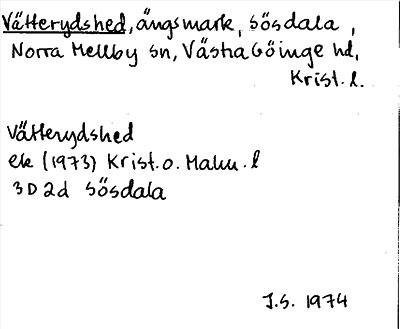 Vätterydshed, ängsmark, Sösdala,
Norra Mellby sn, Västra Göinge hd,
Krist. l.
Vätterydshed
ek (1973) Krist. o. Malm. l
3D2d Sösdala
J.S. 1974